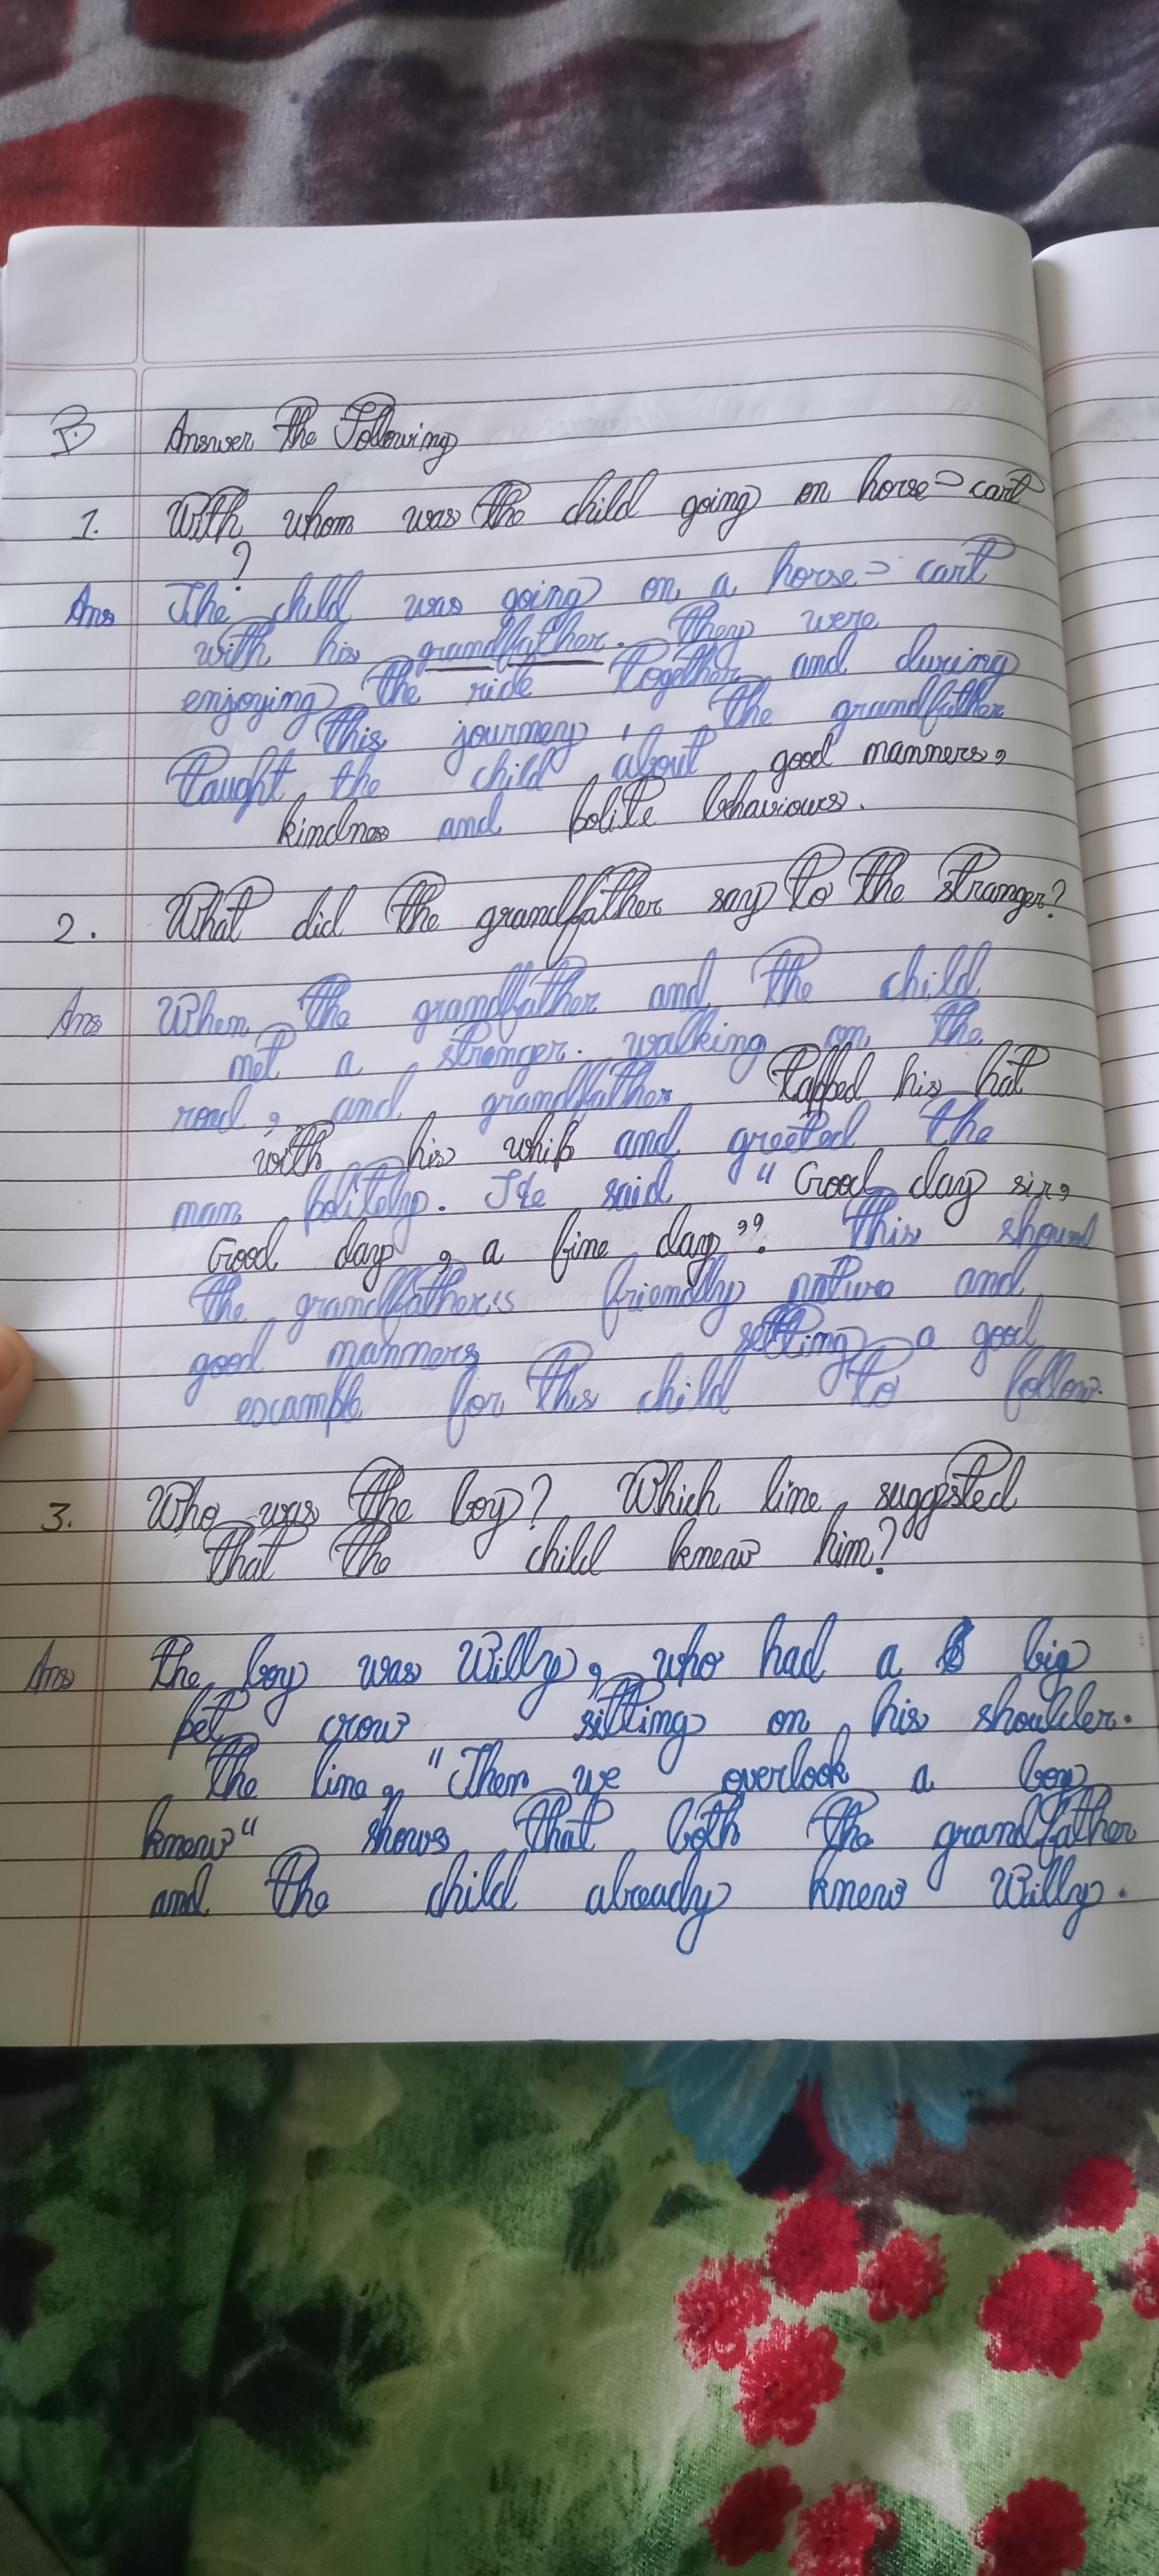 B Answer The Following
1. With whom was the child going on horse-cart
?
Ans The child was going on a horse-cart
with his grandfather. They were
enjoying the ride together and during
this journey, the grandfather
taught the child about good manners,
kindness and polite behaviours.
2. What did the grandfather say to the stranger?
Ans When the grandfather and the child
met a stranger. walking on the
road, and grandfather tapped his hat
with his whip and greeted the
man politely. He said "Good day sir,
Good day, a fine day". This showed
the grandfather's friendly nature and
good manners setting a good
example for this child to follow.
3. Who was the boy? Which line suggested
that the child knew him?
Ans The boy was Willy, who had a big
pet crow sitting on his shoulder.
The line, "Then we overlook a boy
knew" shows that both the grandfather
and the child already knew Willy.